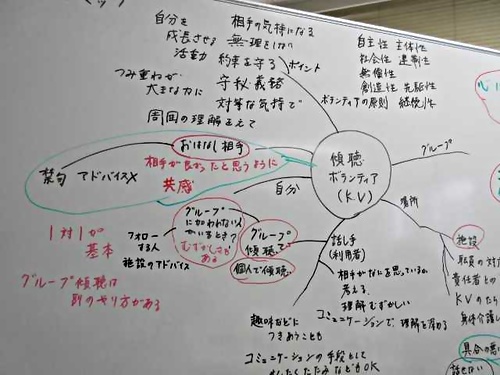 マップ
自分を
成長させる
活動
相手の気持になる
無理をしない
約束を守る
ポイント
守秘義務
対等な気持で
つみ重ねが
大きな力に
周囲の理解をえて
自主性 主体性
社会性 連帯性
無償性
創造性 先駆性
ボランティアの原則 継続性
おはなし相手
相手が良かったと思うように
共感
禁句 アドバイスX
傾聴
ボランティア
(KV)
グループ
自分
場所
1対1が
基本
グループ傾聴は
別のやり方がある
フォロー
する人
施設のアドバイス
グループ
に加われない人
がいるとき?
むずかしさも
ある
グループ
傾聴
個人で傾聴
話し手
(利用者)
相手がなにを思っているのか
考える
理解むずかしい
コミュニケーションで理解を深める
趣味などに
つきあうことも
コミュニケーションの手段として
せんたくたたみなどもOK
施設
職員の対
責任者との
KVのたち
身体介護し
具合の悪い
話せない